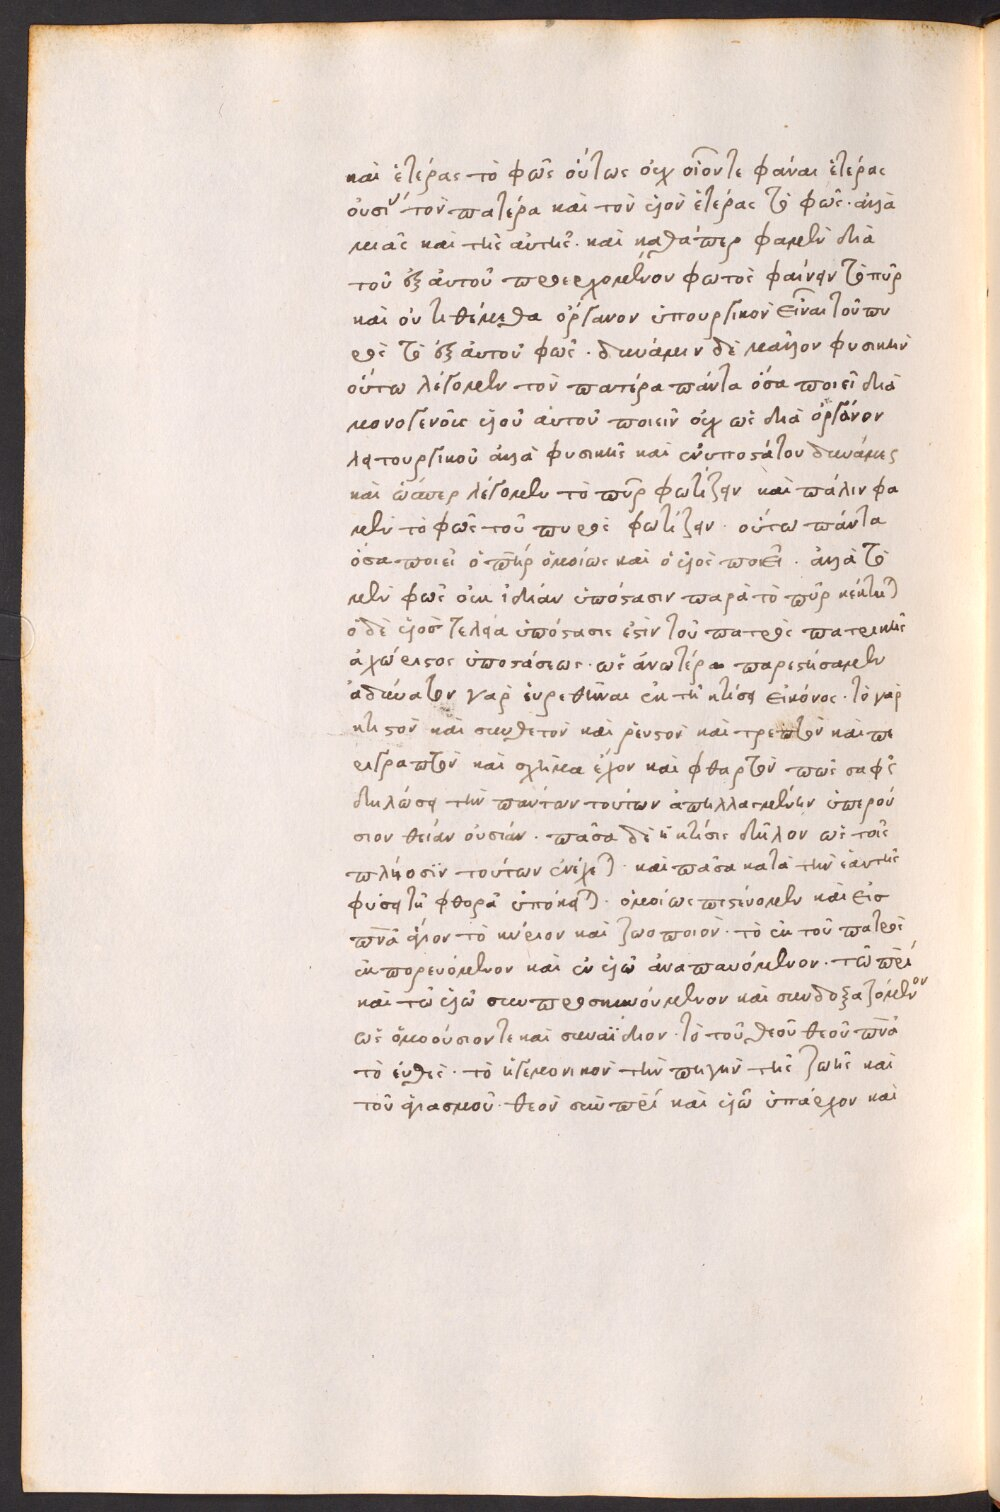 καὶ ἑτέρας τὸ φῶς οὕτως οὐχ οἷόντε φάναι ἑτέρας
οὐσί τὸν πατέρα καὶ τὸν υἱὸν ἑτέρας τὸ φῶς· ἀλλὰ
μιᾶς καὶ τῆς αὐτῆς· καὶ καθάπερ φαμὲν διὰ
τοῦ ἐξ αὐτοῦ προερχομένου φωτὸς φαίνειν τὸ πῦρ
καὶ οὐ τιθέμεθα ὄργανον ὑπουργικὸν εἶναι τοῦ πυ
ρὸς τὸ ἐξ αὐτοῦ φῶς· δυνάμιν δὲ μᾶλλον φυσικὴν
οὕτω λέγομεν τὸν πατέρα πάντα ὅσα ποιεῖ διὰ
μονογενοῦς υἱοῦ αὐτοῦ ποιεῖν οὐχ ὡς διὰ ὀργάνου
λειτουργικοῦ ἀλλὰ φυσικῆς καὶ ἐνυποστάτου δυνάμεως
καὶ ὥσπερ λέγομεν τὸ πῦρ φωτίζειν καὶ πάλιν φα
μὲν τὸ φῶς τοῦ πυρὸς φωτίζειν· οὕτω πάντα
ὅσα ποιεῖ ὁ πηρ ὁμοίως καὶ ὁ υἱὸς ποιεῖ· ἀλλὰ τὸ
μὲν φῶς οὐκ ἰδίαν ὑπόστασιν παρὰ τὸ πῦρ κέκτηται
ὁ δὲ υἱὸς τελεία ὑπόστασις ἐστὶν τοῦ πατρὸς πατρικῆς
ἀχώριστος ὑποστάσεως· ὡς ἀνωτέρω παρεστήσαμεν
ἀδύνατον γὰρ εὑρεθῆναι ἐν τῇ κτίσει εἰκόνος· τὸ γὰρ
κτιστὸν καὶ συνθετὸν καὶ ῥευστὸν καὶ τρεπτὸν καὶ πε
ριγραπτὸν καὶ σχῆμα ἔχον καὶ φθαρτὸν πῶς σαφῶς
δηλώσει τὴν πάντων τούτων ἀπηλλαγμένην ὑπερού
σιον θείαν οὐσίαν· πᾶσα δὲ ἡ κτίσις δῆλον ὡς τοῖς
πλήοσϊν τούτων ἐνέχεται· καὶ πᾶσα κατὰ τὴν ἑαυτῆς
φύσει τῇ φθορᾷ ὑπόκειται· ὁμοίως πιστεύομεν καὶ εἰς
πνα ἅγιον τὸ κύριον καὶ ζωοποιόν· τὸ ἐκ τοῦ πατρὸς
ἐκπορευόμενον καὶ ἐν υἱῷ ἀναπαυόμενον· τῷ πρί
καὶ τῷ υἱῷ συμπροσκυνούμενον καὶ συνδοξαζόμενον
ὡς ὁμοούσιόν τε καὶ συναΐδιον· τὸ τοῦ θεοῦ θεοῦ πνα
τὸ εὐθὲς· τὸ ἡγεμονικὸν τὴν πηγὴν τῆς ζωῆς καὶ
τοῦ ἁγιασμοῦ· θεὸν σὺν πρί καὶ υἱῷ ὑπάρχον καὶ